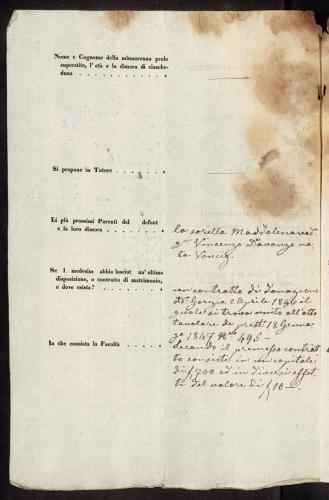 Nome e Cognome della minorenne prole
superstite, l' età e la dimora di ciasche-
duna . . . . . . . . . . . .
Si propone in Tutore . . . . . . .
Li più prossimi Parenti del defont
e la loro dimora . . . . . . . .
la sorella Maddalena ved.
Vincenzo Davanzo na-
ta
Se l medesim abbia lasciat un' ultima
disposizione, o contratto di matrimonio,
e dove esista? . . . . . . . .
un contratto di donazione
Gorizia 2 Aprile 1846 il
quale si trova unito all'atto
tavolare de 18 Genna
jo 1847 N. 495 -
In che consista la Facoltà . . . . .
Secondo il premesso contrat-
to consiste in un capitale
di f 700 ed in diversi effet-
ti del valore di f 10 -.